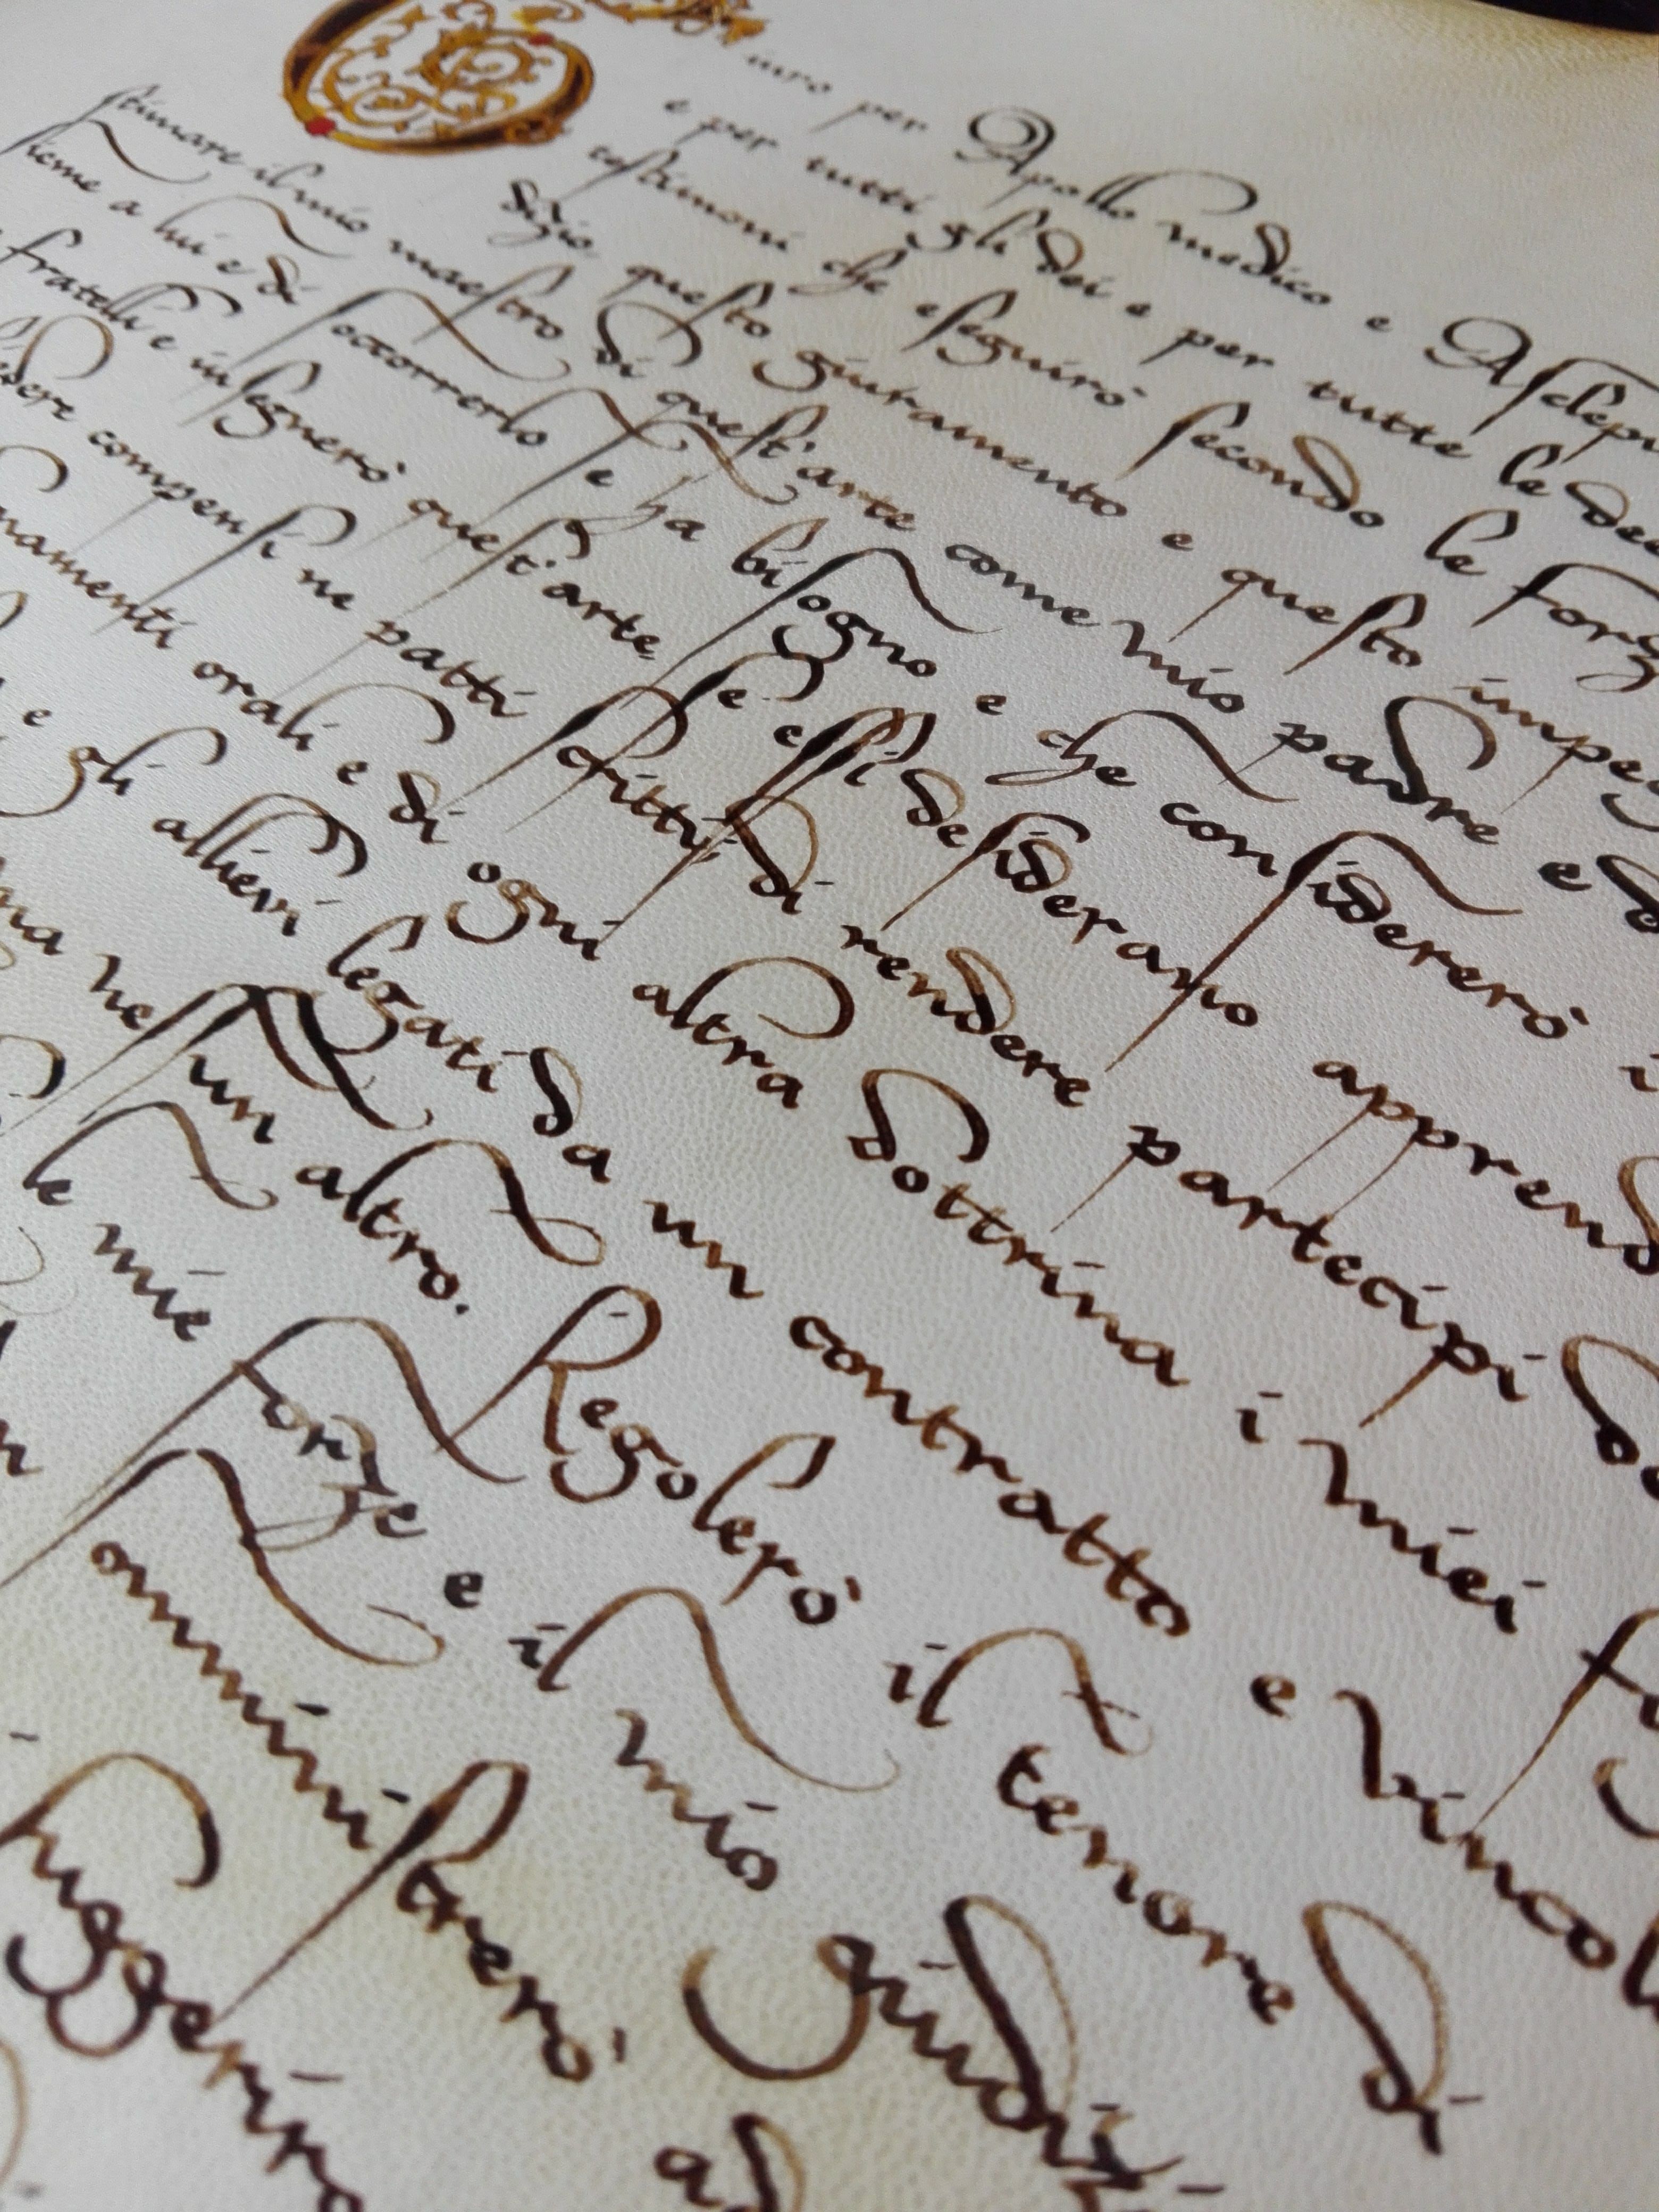 Giuro per Apollo medico e Asclepi
e per tutti gli dei e per tutte le dee
testimoni che eseguirò secondo le forz
dizio, questo giuramento e questo impeg
stimare il mio maestro di quest'arte come mio padre e d
sieme a lui e di soccorrerlo se ha bisogno e che considererò i
fratelli e insegnerò quest'arte, se essi desiderano apprend
edere compensi ne patti scritti; di rendere partecipi de
namenti orali e di ogni altra dottrina i miei f
e gli allievi legati da un contratto e vincol
ma nessun altro. Regolerò il tenore di
le mie forze e il mio giudiz
n somministrerò ad
suggerirò